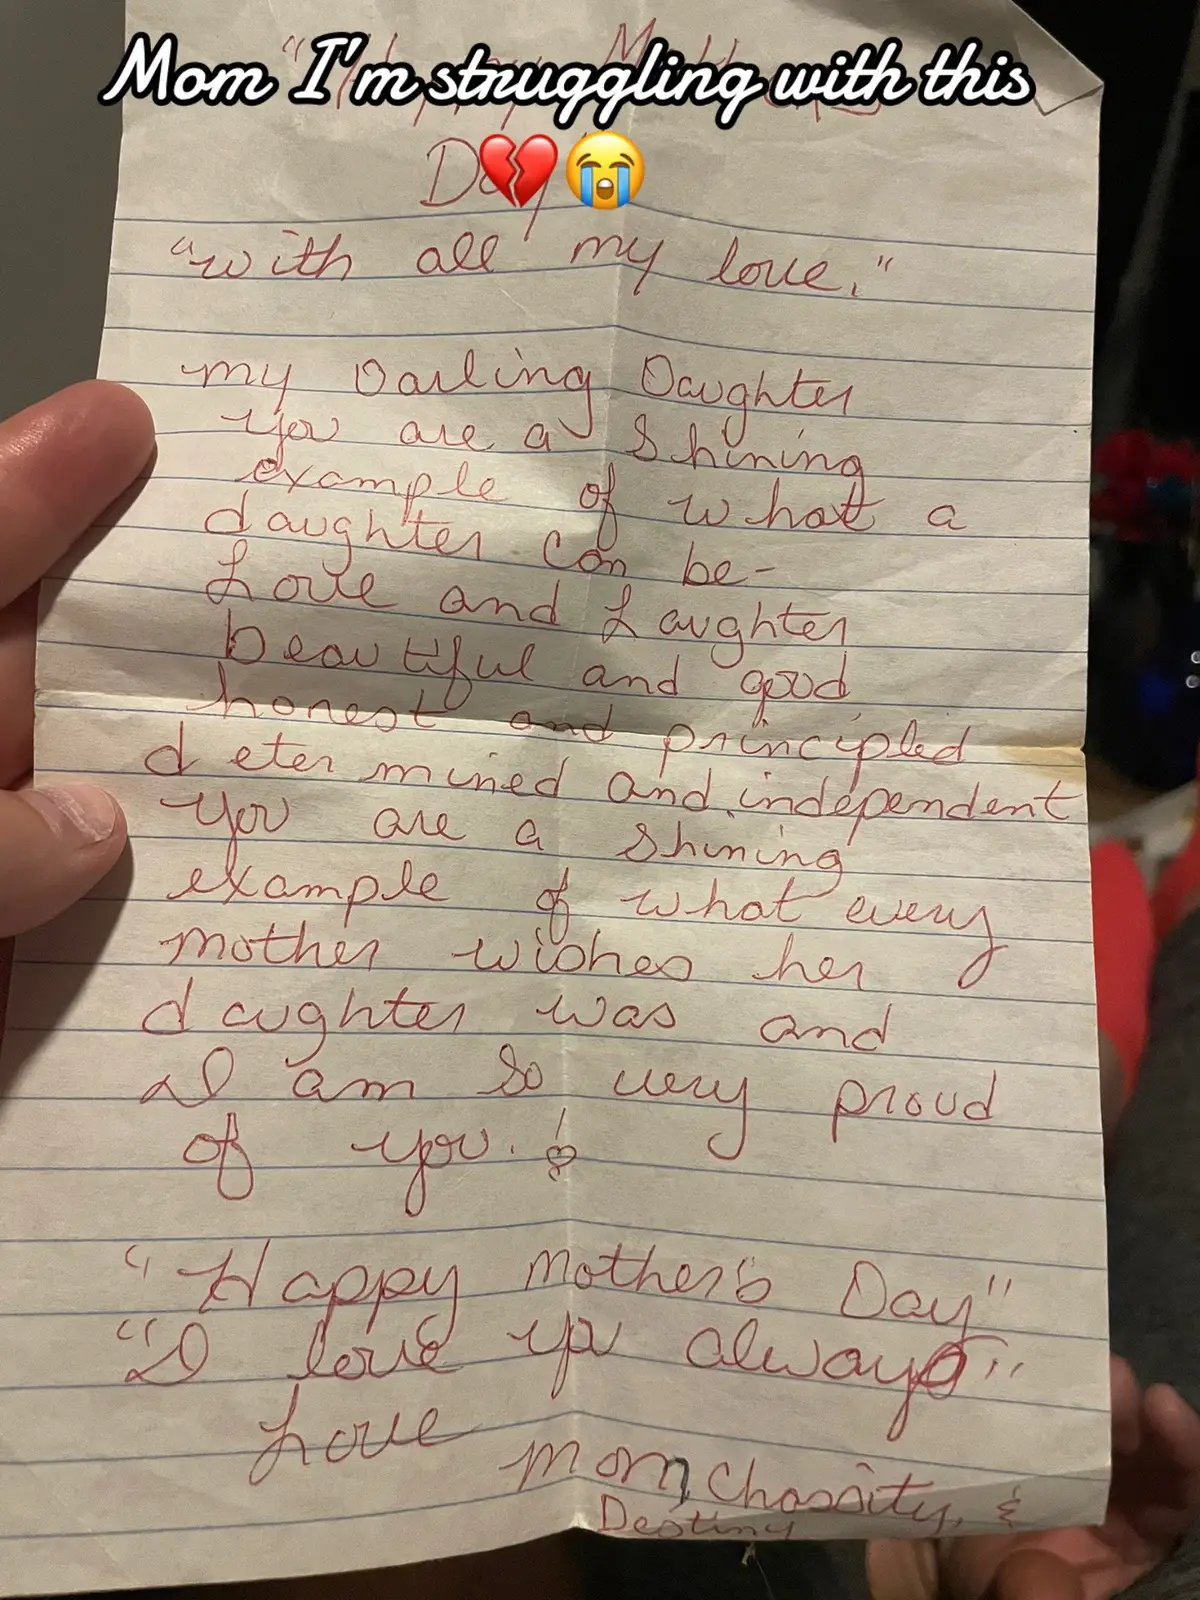 Mom I'm struggling with this
Day"
"with all my love."
my Darling Daughter
you are a Shining
example of what a
daughter can be-
Love and Laughter
beautiful and good
honest and principled
determined and independent
You are a shining
example of what every
mother wishes her
daughter was and
I am so very proud
of you.
"Happy Mother's Day"
"I love ya always"
Love
Mom, Chassity, &
Destiny